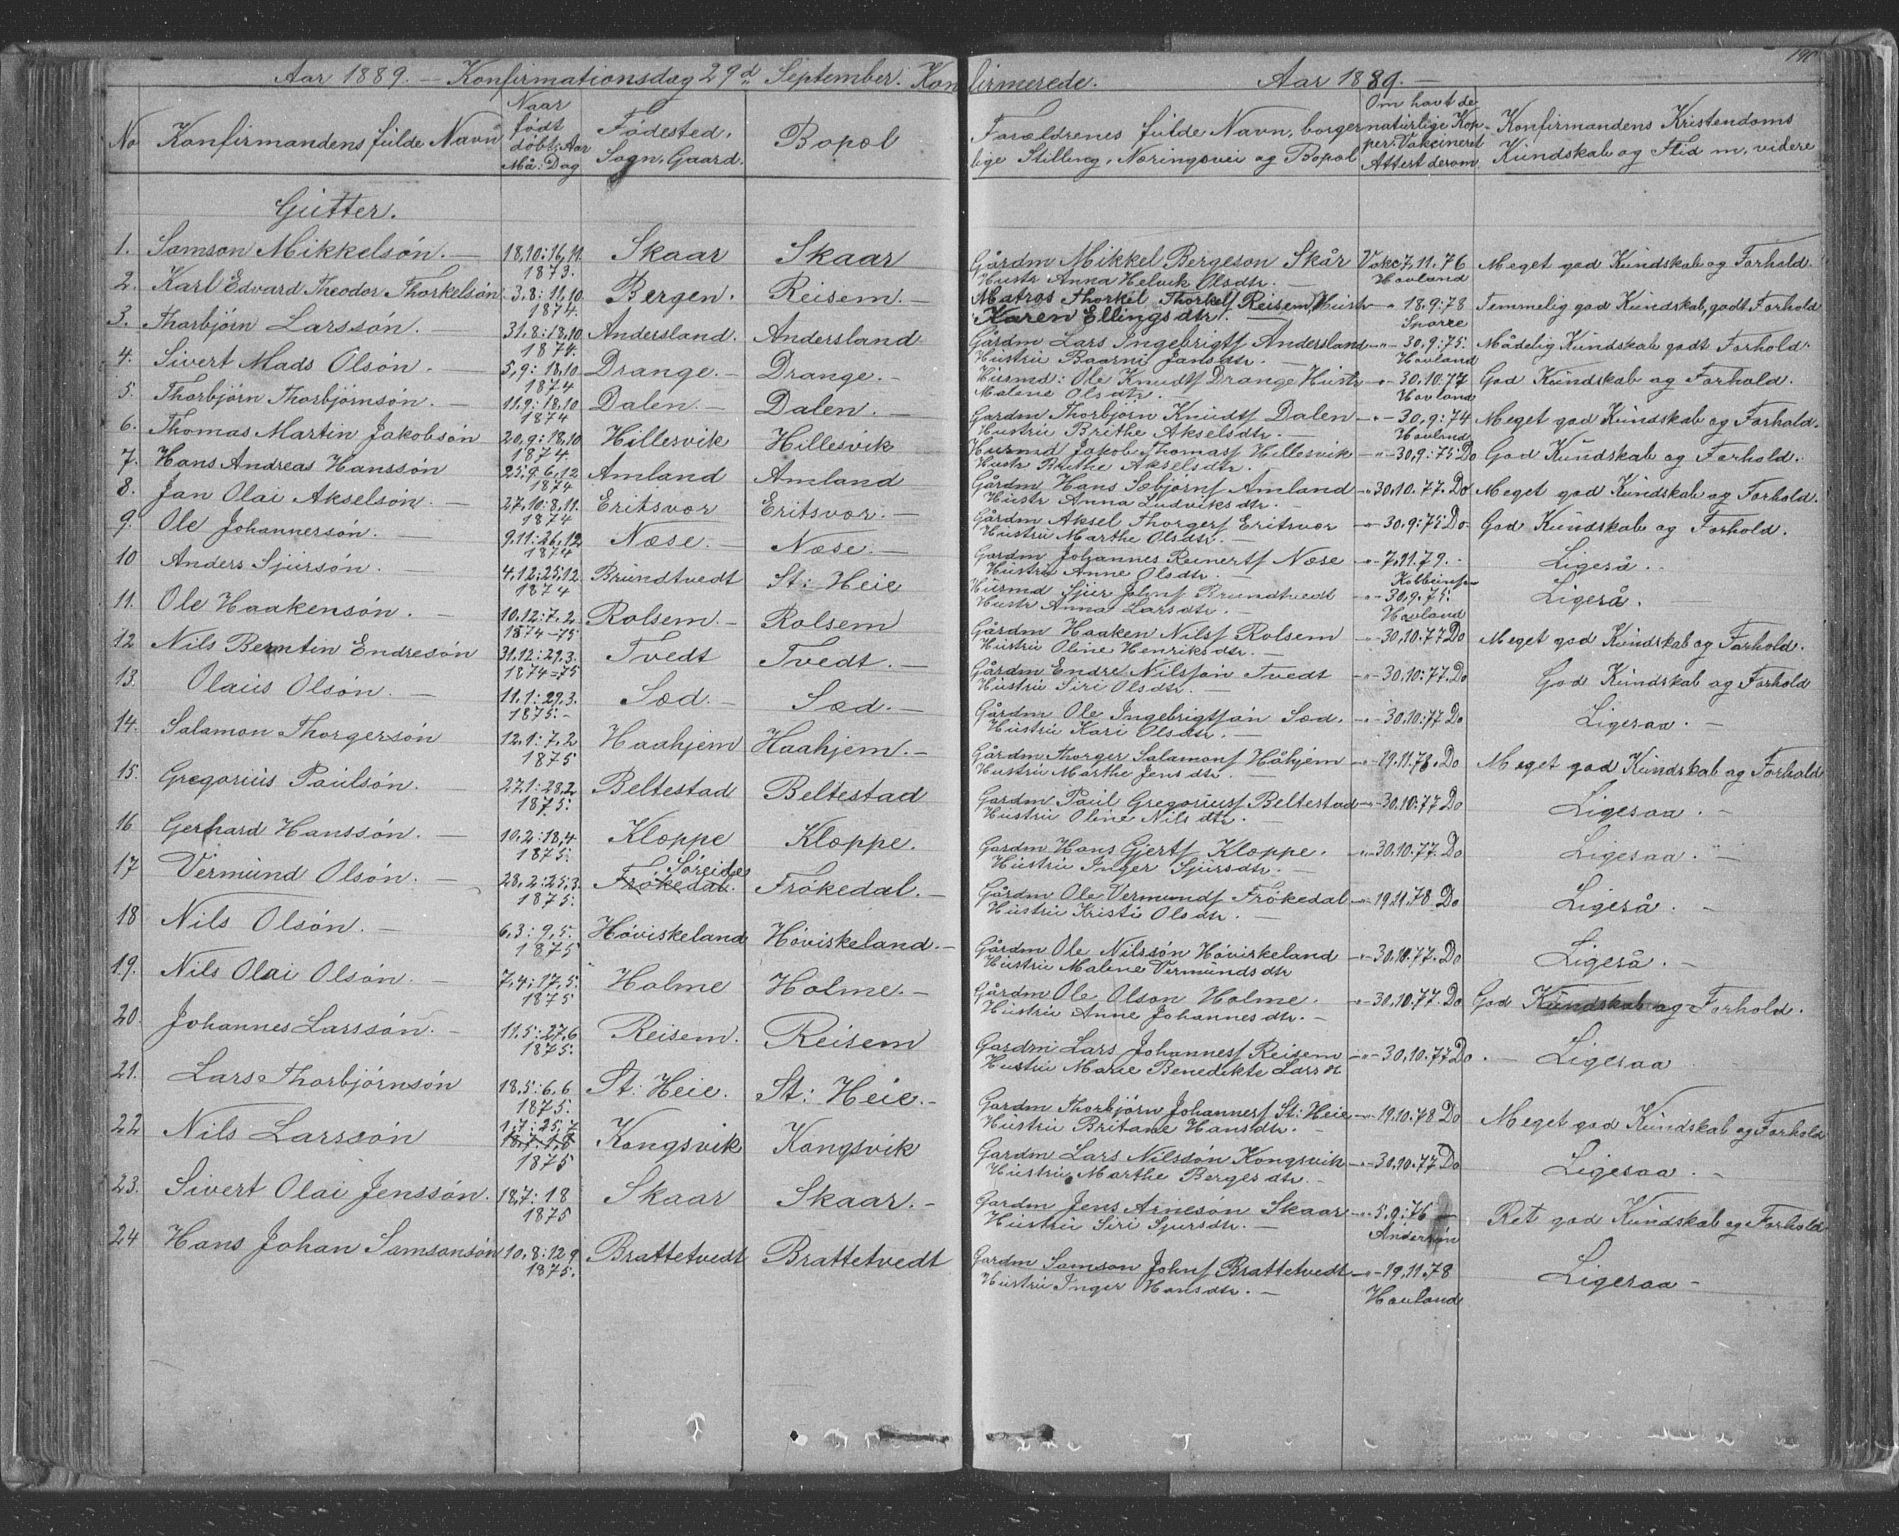 Aar 1889. — Konfirmationsdag 29d September. Konfirmerede. Aar 1889. —
No Konfirmandens fulde Navn Naar født døbt, Aar Må: Dag Fødested, Sogn, Gaard. Bopæl Forældrenes fulde Navn, borgerlige Stilling, Næringsvei og Bopæl Om havt de naturlige Kopper. Vakcineret Attest derom. Konfirmandens Kristendoms Kundskab og Flid m. videre
Gutter.
1. Samson Mikkelsøn. — 18.10:16.11. 1873. Skaar Skaar Gårdm Mikkel Bergeson Skår Hustr Anna Helvik Olsdtr. Vakc 7.11.76 Hovland Meget god Kundskab og Forhold
2. Karl Edvard Theodor Thorkelsøn 3.8:11.10. 1874. Bergen. Reisem. — Matros Thorkil Thorkels Reisem, Hustr Karen Ellingsdtr. — -"- 18.9:78 Temmelig god Kundskab, godt Forhold
3. Thorbjørn Larssøn. — 31.8:18.10 1874. Andersland. Andersland Gårdm Lars Ingebrigts Andersland Hustru Baarni Jansdtr. — -"- 30.9:75. Hovland Mådelig Kundskab godt Forhold.
4. Sivert Mads Olsøn. — 5.9:18.10. 1874 Drange. — Drange. — Husmd: Ole Knuds Drange Hustr Malene Olsdtr. -"- 30.10:77 Hovland God Kundskab og Forhold.
5. Thorbjørn Thorbjørnsøn. — 11.9:18.10 1874 Dalen. — Dalen. — Gardm Thorbjørn Knuds Dalen Hustru Brithe Akselsdtr. — -"- 30.9:74 Hovland Meget god Kundskab og Forhold.
6. Thomas Martin Jakobsøn 20.9:18.10 1874. Hillesvik Hillesvik Husmd Jakob Thomas Hillesvik Hustr Brithe Akselsdtr. -"- 30.9:75 Do God Kundskab og Forhold.
7. Hans Andreas Hanssøn 25.9.6.12 1874 Amland Amland Gårdm Hans Sæbjørns Amland Hustr Anna Ludviksdtr. -"- 30.10.77. Do Meget god Kundskab og Forhold.
8. Jan Olai Akselsøn. — 27.10:8.11. 1874 Eritsvor Eritsvor. — Gårdm Aksel Thorgers Eritsvor Hustru Marthe Olsdtr. -"- 30.9:75 Do God Kundskab og Forhold.
9. Ole Johannersøn. — 9.11:26.12 1874 Næse. — Næse. — Gardm Johannes Reinerts Næse Hustru Anne Olsdtr. — -"- 7.11.79. Ligeså.
10 Anders Sjursøn. — 4.12:25.12. 1874 Brundtvedt St: Heie Husmd Sjur Johns Brundtvedt Hustr Anna Larsdtr. — -"- 30.9.75: Hovland Ligeså.
11. Ole Haakensøn. — 10.12:7.2. 1874-75 Rolsem. — Rolsem Gårdm Haaken Nils Rolsem Hustru Oline Henriksdtr. — -"- 30.10:77 Do Meget god Kundskab og Forhold.
12 Nils Berntin Endresøn 31.12:29.3. 1874=75 Tvedt Tvedt. — Gårdm Endre Nilssøn Tvedt Hustru Siri Olsdtr. — -"- 30.10:77. Do God Kundskab og Forhold
13. Olaus Olsøn. — 11.1:29.3. 1875. - Sæd. — Sæd. — Gårdm Ole Ingebrigtsøn Sæd. Hustru Kari Olsdtr. — -"- 30.10:77 Do Ligesaa. —
14. Salamon Thorgersøn 12.1:7.2 1875 Haahjem Haahjem. — Gårdm Thorger Salamons Håhjem Hustru Marthe Jensdtr. — -"- 19.11.78. Do Meget god Kundskab og Forhold
15. Gregorius Paulsøn. — 27.1:28.2. 1875. Beltestad Beltestad Gårdm Paul Gregorius Beltestad Hustru Oline Nilsdtr. — -"- 30.10:77 Do Ligesaa. —
16 Gerhard Hanssøn. — 10.2:18.4 1875: Klæppe Klæppe. Gårdm Hans Gjerts Klæppe. Hustru Inger Sjursdtr. — -"- 30.10:77. Do Ligesaa. —
17 Vermund Olsøn. — 28.2:25.3. 1875: Søreide Frøkedal. Frøkedal. — Gårdm Ole Vermunds Frøkedal Hustru Kristi Olsdtr. — -"- 19.11.78. Do Ligeså. —
18 Nils Olsøn. — 6.3:9.5. 1875 Høviskeland Høviskeland. — Gårdm Ole Nilssøn Høviskeland Hustru Malene Vermundsdtr -"- 30.10.77. Do Ligeså. —
19. Nils Olai Olsøn. — 7.4:17.5. 1875 Holme Holme. — Gårdm Ole Olson Holme. Hustru Anne Johannesdtr. — -"- 30.10:77. Do God Kundskab og Forhold.
20. Johannes Larssøn. — 11.5:27.6 1875: Reisem. Reisem Gardm Lars Johannes Reisem Hustru Marie Benedikte Larsdt -"- 30.10:77 Do. — Ligesaa
21. Lars Thorbjørnsøn 18.5:6.6 1875. St: Heie. St: Heie. — Gardm Thorbjørn Johannes St: Heie Hustru Britane Hansdtr. — -"- 19.10:78 Do Meget god Kundskab og Forhold
22 Nils Larssøn 1.7:25.7 1875 Kongsvik Kongsvik Gardm Lars Nilssøn Kongsvik Hustru Marthe Bergesdtr. — -"- 30.10:77. Do Ligesaa. —
23. Sivert Olai Jenssøn. 18.7:18 1875 Skaar Skaar. — Gardm Jens Arnesøn Skaar Hustru Siri Sjursdtr. — -"- 5.9:76 Anderson Ret god Kundskab og Forhold
24 Hans Johan Samsonsøn 10.8:12.9 1875. Brattetvedt Brattetvedt Gardm Samson Johns Brattetvedt Hustru Inger Hansdtr. — -"- 19.11.78 Hovland Ligesaa —